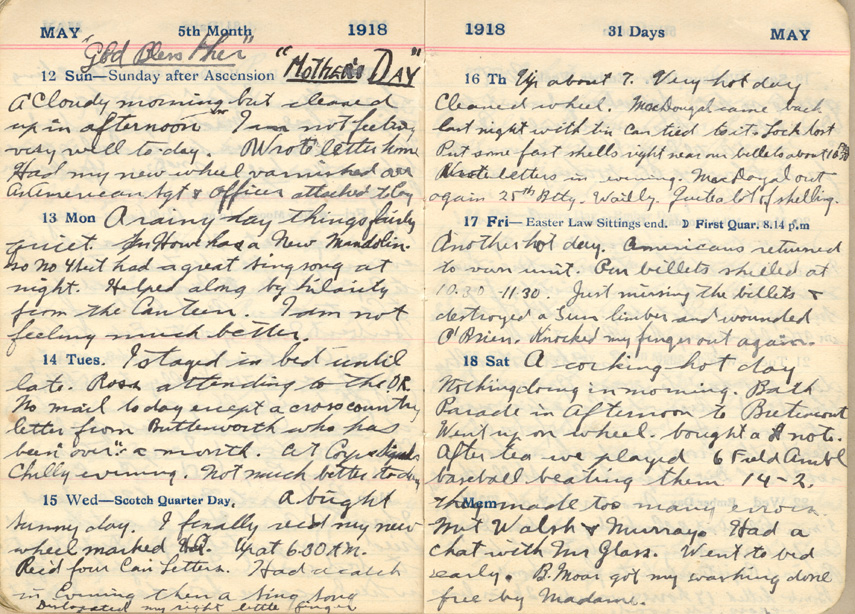 MAY 5th Month 1918
"God Bless Her"
12 Sun—Sunday after Ascension "Mother's Day"
A cloudy morning but cleared
up in afternoon. I am not feeling
very well to-day. Wrote letter home
Had my new wheel varnished over
An American Sgt & Officer attached to by
13 Mon A rainy day things fairly
quiet. Jn Howe has a New Mandolin.
so No 4 hut had a great singsong at
night. Helped along by hilarity
from the Canteen. I am not
feeling much better.
14 Tues. I stayed in bed until
late. Ross attending to the D.R.
No mail to day except a crosscountry
letter from Butterworth who has
been "over" a month. At Corps
Chilly evening. Not much better to-day
15 Wed—Scotch Quarter Day. A bright
sunny day. I finally rec'd my new
wheel marked Up at 6-30 A.M.
Rec'd four Can Letters. Had a catch
in Evening then a Sing Song
Dislocated my right little finger
1918 31 Days MAY
16 Th Up about 7. Very hot day
Cleaned wheel. MacDougal came back
last night with tin can tied to it. Lock lost
Put some fast shells right near our billets about 10 30
Wrote letters in evening. MacDougal out
again 25th Btty. Wailly. Quite a lot of shelling.
17 Fri—Easter Law Sittings end. First Quar. 8.14 p.m
Another hot day. Americans returned
to own unit. Our billets shelled at
10.30-11.30. Just missing the billets &
destroyed a Gun limber and wounded
O'Brien. Knocked my finger out again.
18 Sat A corking hot day
Nothing doing in morning. Bath
Parade in Afternoon to Bretencourt
Went up on wheel. bought a note.
After tea we played 6 Field Ambl
baseball beating them 14-2.
Mem
They made too many errors.
Met Walsh & Murray. Had a
chat with Mr Glass. Went to bed
early. B. Moar got my washing done
free by Madame.